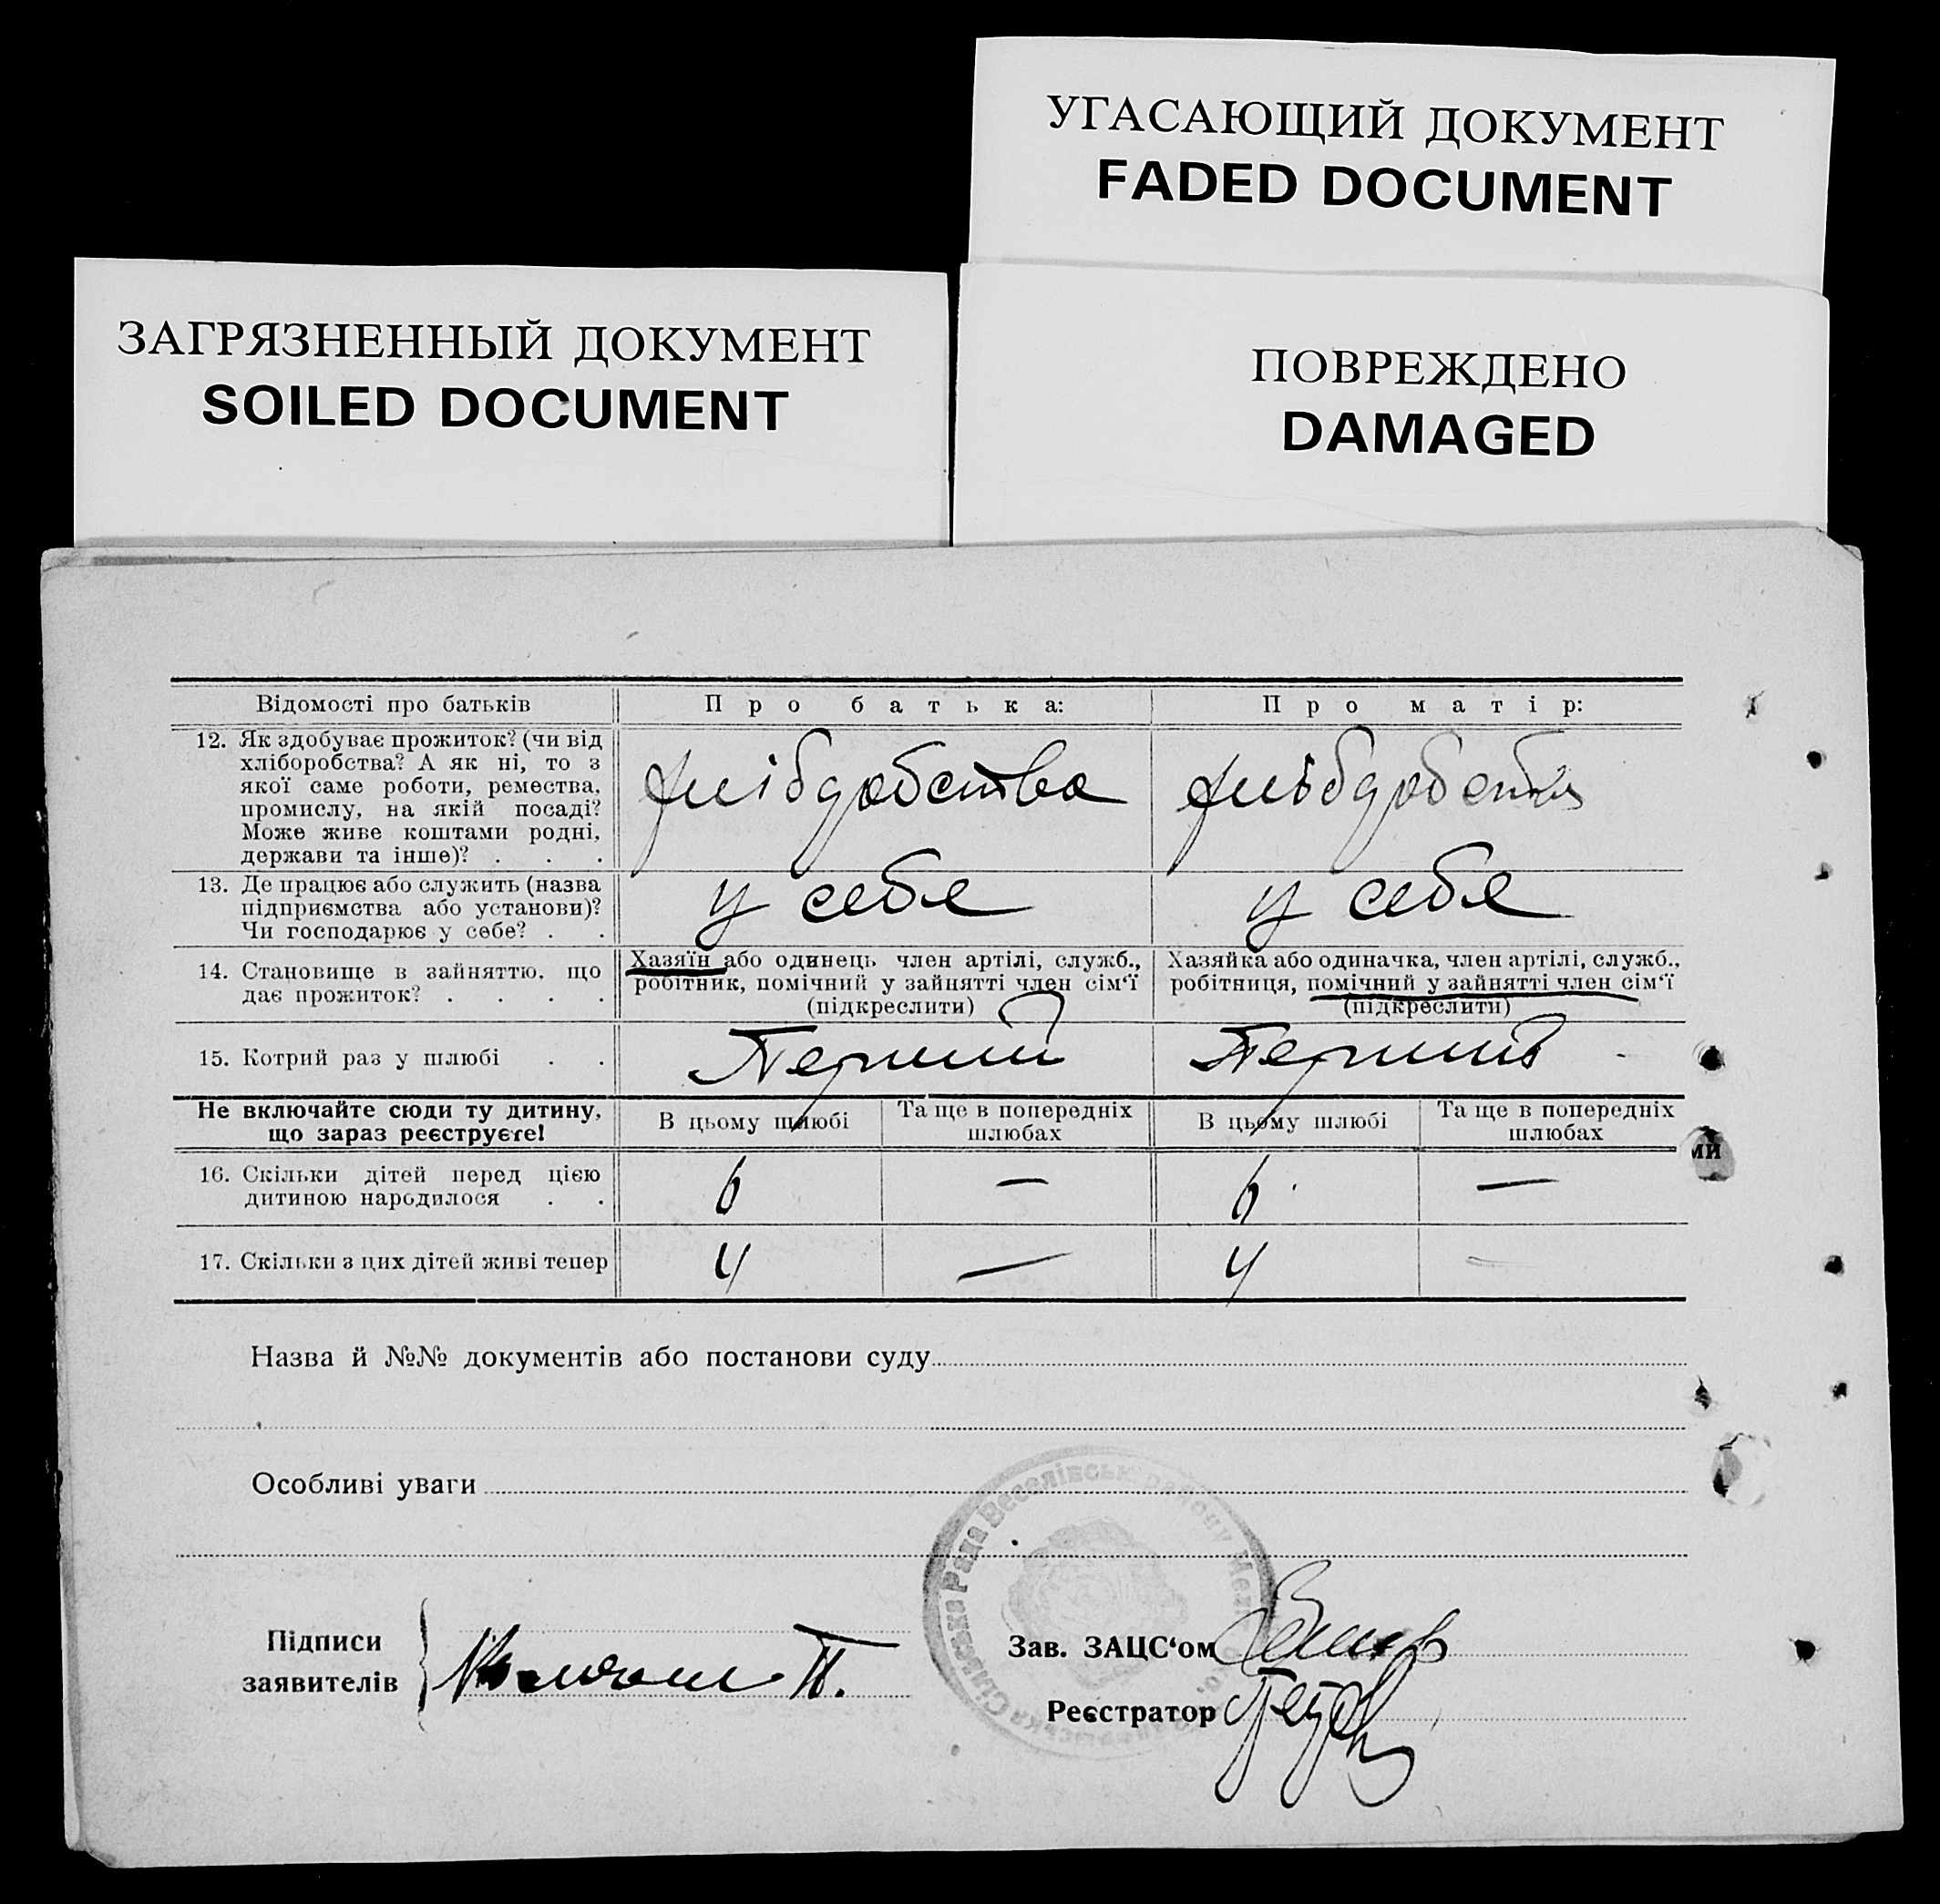 УГАСАЮЩИЙ ДОКУМЕНТ
FADED DOCUMENT
ЗАГРЯЗНЕННЫЙ ДОКУМЕНТ
SOILED DOCUMENT
ПОВРЕЖДЕНО
DAMAGED
Відомості про батьків
Про батька:
Про матір:
12. Як здобуває прожиток? (чи від
хліборобства? А як ні, то з
якої саме роботи, ремества,
промислу, на якій посаді?
Може живе коштами родні,
держави та інше)? . . .
13. Де працює або служить (назва
підприємства або установи)?
Чи господарює у себе? . .
у себе
у себе
14. Становище в зайняттю, що
дає прожиток? . . . .
Хазяїн або одинець член артілі, служб.,
робітник, помічний у зайнятті член сім‘ї
(підкреслити)
Хазяйка або одиначка, член артілі, служб.,
робітниця, помічний у зайнятті член сім‘ї
(підкреслити)
15. Котрий раз у шлюбі . .
Перший
Не включайте сюди ту дитину,
що зараз реєструєте!
В цьому шлюбі
Та ще в попередніх
шлюбах
В цьому шлюбі
Та ще в попередніх
шлюбах
ми
16. Скільки дітей перед цією
дитиною народилося . .
6 — 6 —
17. Скільки з цих дітей живі тепер
4 — 4 —
Назва й №№ документів або постанови суду
Особливі уваги
Сільська Рада Веселівськ району
Підписи
заявителів
П.
Зав. ЗАЦС‘ом
Реєстратор